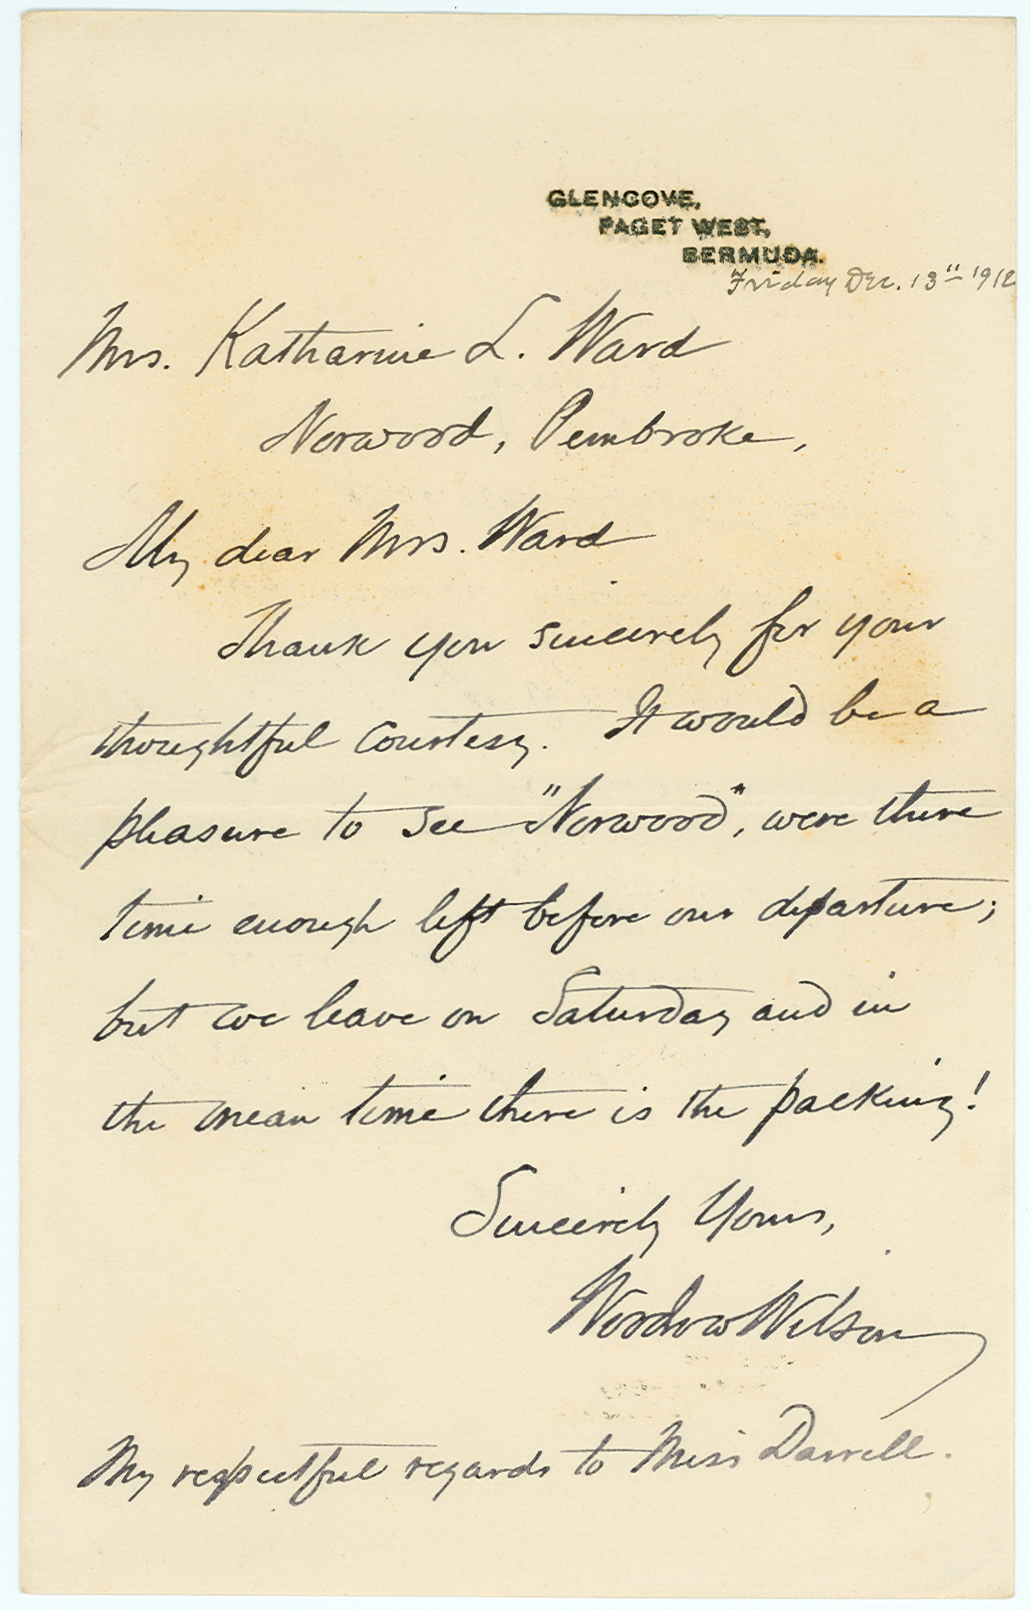 GLENCOVE,
PAGET WEST,
BERMUDA.
Friday Dec. 13" 1912
Mrs. Katharine L. Ward
Norwood, Pembroke,
My dear Mrs. Ward
Thank you sincerely for your
thoughtful courtesy. It would be a
pleasure to see "Norwood", were there
time enough left before our departure;
but we leave on Saturday and in
the mean time there is the packing!
Sincerely Yours,
Woodrow Wilson
My respectful regards to Miss Darrell.